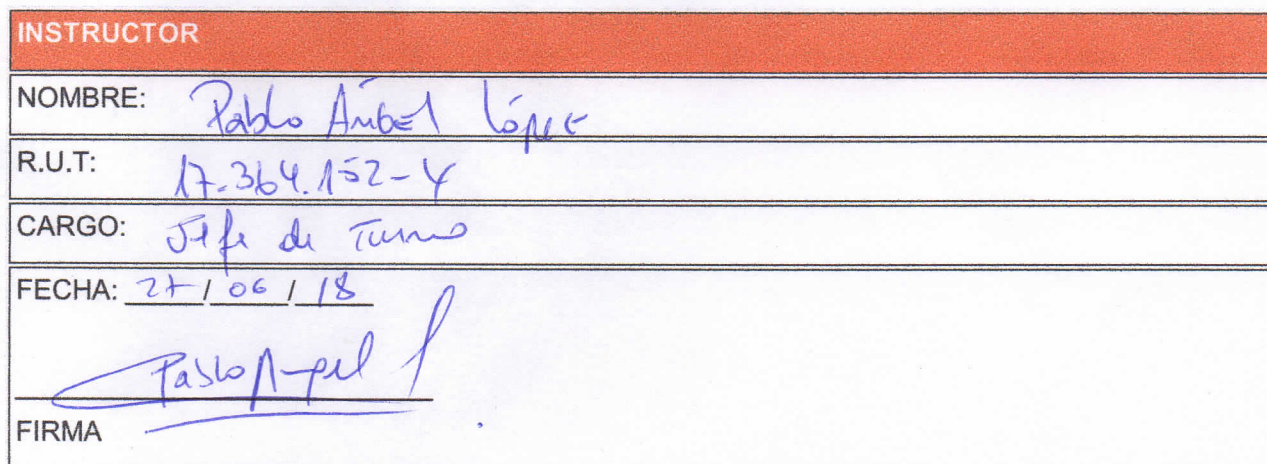 INSTRUCTOR
NOMBRE: Pablo Ángel López
R.U.T: 17.364.152-4
CARGO: Jefe de Turno
FECHA: 27/06/18
Pablo Angel L
FIRMA